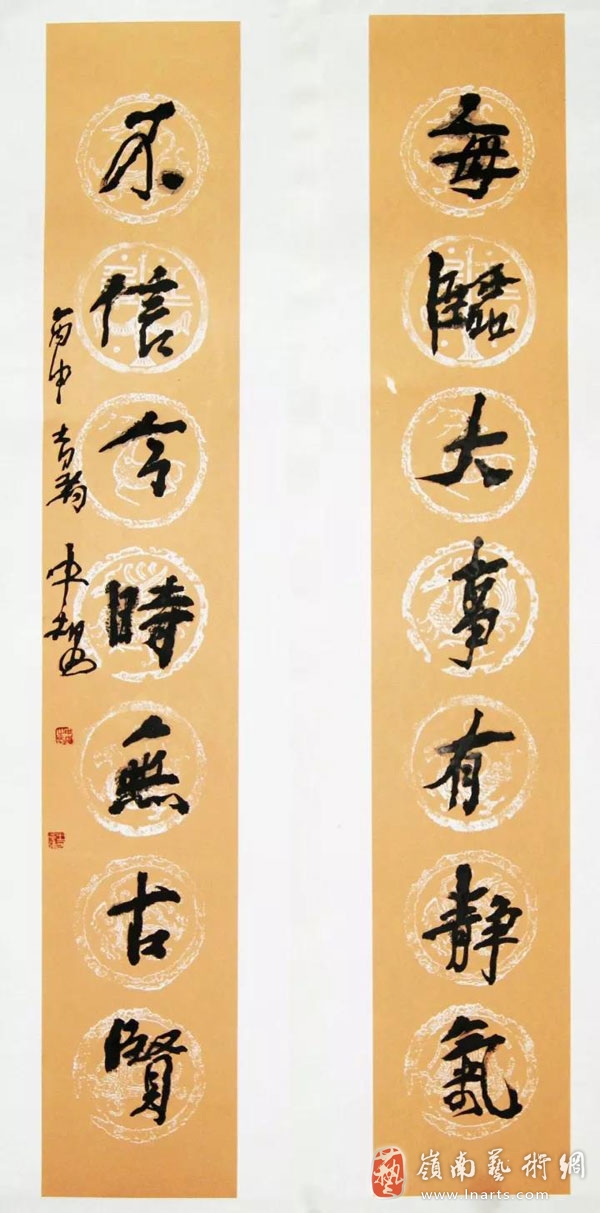 每臨大事有靜氣
不信今時無古賢
丙申
嶺南藝術網
www.lnarts.com